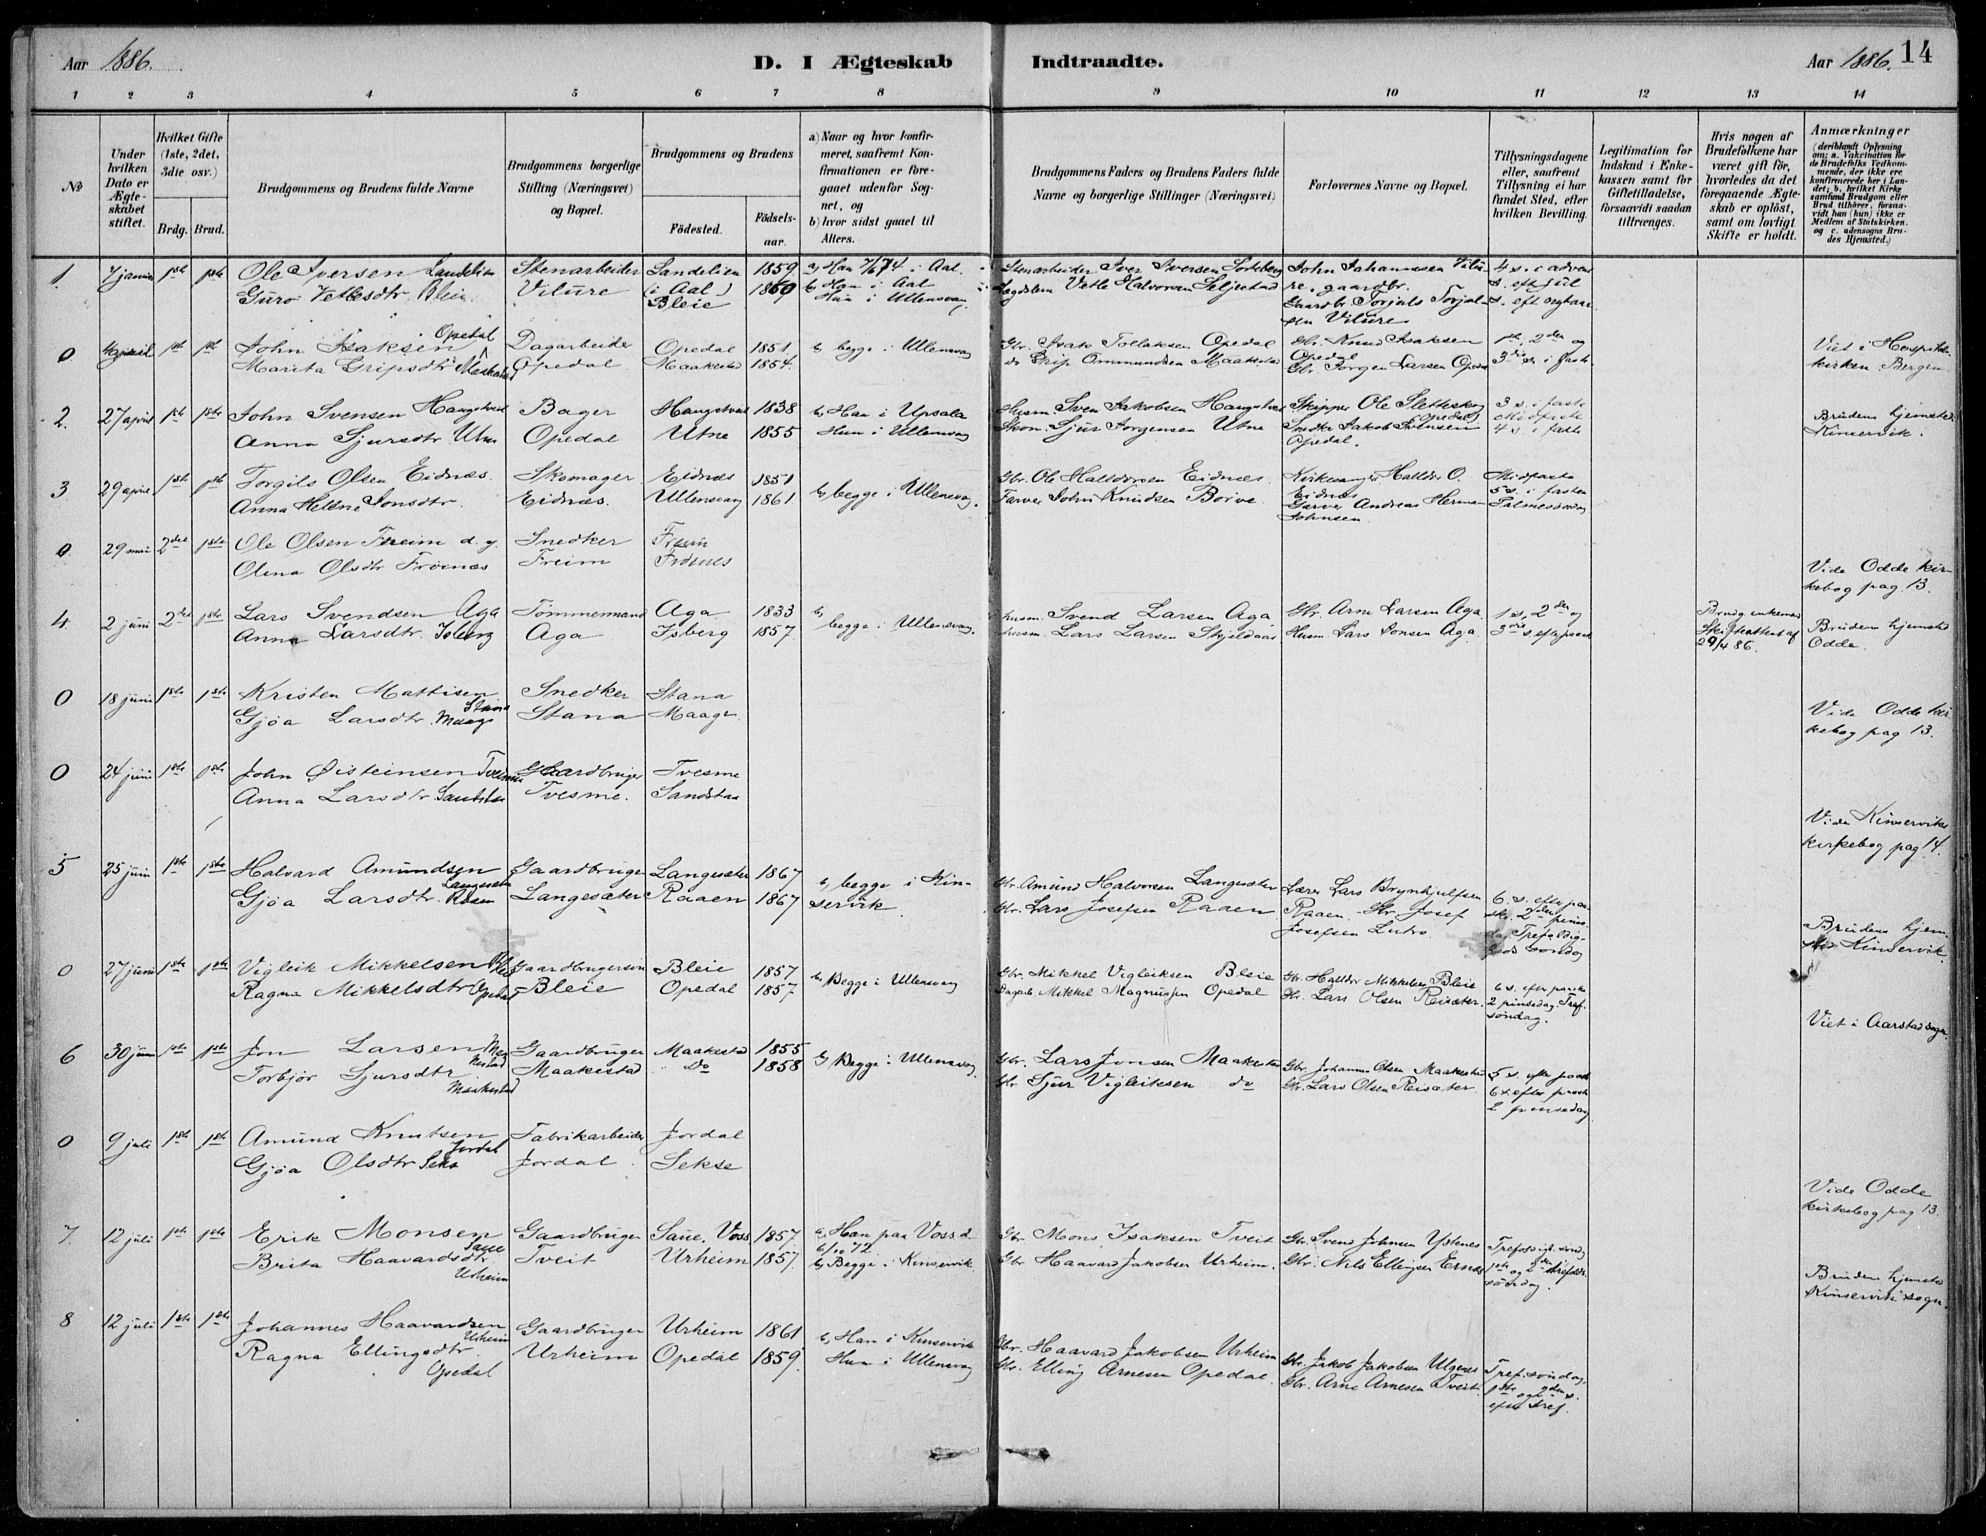 Aar 1886.
D. I Ægteskab Indtraadte.
Aar 1886. 14
1 2 3 4 5 6 7 8 9 10 11 12 13 14
No
Under hvilken Dato er Ægteskabet stiftet.
Hvilket Gifte (1ste, 2det, 3die osv.)
Brdg. Brud.
Brudgommens og Brudens fulde Navne
Brudgommens borgerlige Stilling (Næringsvei) og Bopæl.
Brudgommens og Brudens
Fødested.
Fødselsaar.
a) Naar og hvor konfirmeret, saafremt Konfirmationen er foregaaet udenfor Sognet, og
b) hvor sidst gaaet til Alters.
Brudgommens Faders og Brudens Faders fulde Navne og borgerlige Stillinger (Næringsvei)
Forlovernes Navne og Bopæl.
Tillysningsdagene eller, saafremt Tillysning ei har fundet Sted, efter hvilken Bevilling.
Legitimation for Indskud i Enkekassen samt for Giftetilladelse, forsaavidt saadan tiltrænges.
Hvis nogen af Brudefolkene har været gift før, hvorledes da det foregaaende Ægteskab er opløst, samt om lovligt Skifte er holdt.
Anmærkninger (deriblandt Oplysning om: a. Vakcination for de Brudefolks Vedkommende, der ikke ere konfirmerede her i Landet; b. hvilket Kirkesamfund Brudgom eller Brud tilhører, forsaavidt han (hun) ikke er Medlem af Statskirken. og c. udensogns Brudes Hjemsted.)
1. 7 januar 1ste 1ste Ole Iversen Sandelien Stenarbeider Sandelien 1859 a, Han 7/6 74 i Aal. Stenarbeider Iver Iversen John Johannssen Vilure, gaardbr. 4 s. i advent
Guro Vetlesdtr Bleie Vilure (i Aal) Bleie 1860 b, Han i Aal Hun i Ullensvang Vetle Halvorsen Seljestad Gaardbr. Torjuls Torjulsen Vilure s. eft jul s. eft nytaar
0 april 1ste 1ste John Isaksen Opedal Dagarbeider Opedal 1851 b, begge i Ullensvang Gbr. Isak Tollaksen Opedal Gbr. Knud Isaksen Opedal 1ste, 2den og Viet i Hospitalskirken Bergen
Marita Gripsdtr Maakestad Opedal Maakestad 1854. do Grip Ommundsen Maakestad Gbr. Jørgen Larsen Opedal 3die s. i faste
2. 27 april 1ste 1ste John Svensen Haugstveit Bøger Haugstveit 1838 b, Han i Upsala Husm. Sven Jakobsen Haugstveit Skipper Ole Sletteskog Opedal 3 s. i faste Midfaste Brudens hjemsted Kinservik.
Anna Sjursdtr Utne Opedal Utne 1855 Hun i Ullensvang Skom. Sjur Jørgensen Utne Snedker Jakob Svensen Opedal. 4 s. i faste
3 29 april 1ste 1ste Torgils Olsen Eidnæs. Skomager Eidnæs 1851 b, begge i Ullensvang. Gbr. Ole Halldorsen Eidnæs Kirkesanger Halldor O. Eidnæs Midfaste
Anna Helene Jonsdtr. Eidnæs. Ullensvang 1861 Farver John Knudsen Børve Garver Andreas Herman Johnsen 5 s. i fasten Palmesøndag
0. 29 mai 2det 1ste Ole Olsen Freim d. y. Snedker Freim Vide Odde kirkebog pag 13.
Olena Olsdtr Frøenæs Freim Frøenæs
4. 2 juni 2det 1ste Lars Svendsen Aga Tømmermand Aga 1833 b, begge i Ullensvang. husm. Svend Larsen Aga Gbr. Arne Larsen Aga. 1 s, 2den og Brudg. enkemand Skifteattest af 29/4 86. Brudens hjemsted Odde.
Anna Larsdtr. Isberg Aga Isberg 1857. husm. Lars Larsen Skjeldaas Husm Lars Jonsen Aga. 3die s efter paaske
0 18 juni 1ste 1ste Kristen Mattisen Stana Snedker Stana Vide Odde kirkebog pag 13.
Gjøa Larsdtr. Maage Stana Maage
0 24 juni 1ste 1ste John Øisteinsen Tvesme Gaardbruger Tvesme Vide Kinserviks kirkebog pag 14.
Anna Larsdtr Sandstaa Tvesme. Sandstaa
5 25 juni 1ste 1ste Halvard Amundsen Langesæter Gaardbruger Langesæter 1867 b, begge i Kinservik Gbr. Amund Halvorsen Langesæter Lærer Lars Brynhjulfsen Raaen. 6. s. efter paaske, 2den pinsedag, Trefoldigheds søndag Brudens hjemsted Kinservik.
Gjøa Larsdtr. Raaen Langesæter Raaen 1867 Gbr. Lars Josefsen Raaen Gbr. Josef Josefsen Lutro
0 27 juni 1ste 1ste Vigleik Mikkelsen Bleie Gaardbrugersøn Bleie 1857 b, Begge i Ullensvang Gbr. Mikkel Vigleiksen Bleie Gbr. Halldor Mikkelsen Bleie 6 s. efter paaske Viet i Aarstad sogn
Ragna Mikkelsdtr Opedal Bleie Opedal 1857. Dagarb Mikkel Magnussen Opedal Gbr. Lars Olsen Reisæter. 2 pinsedag. Tref. søndag.
6 30 juni 1ste 1ste Jon Larsen Maakestad Gaardbruger Maakestad 1855 b, Begge i Ullensvang Gbr. Lars Jonsen Maakestad Gbr. Johannes Olsen Maakestad 5 s. efter paaske
Torbjør Sjursdtr Maakestad Maakestad Do 1858 Gbr Sjur Vigleiksen do Gbr. Lars Olsen Reisæter. 6 s efter paaske 2 pinsedag
0 9 juli 1ste 1ste Amund Knutsen Jordal Fabrikarbeider Jordal Vide Odde kirkebog pag 13.
Gjøa Olsdtr Sekse Jordal. Sekse
7. 12 juli 1ste 1ste Erik Monsen Saue Gaardbruger Saue, Voss 1857. a, Han paa Voss d. 6/10 72 Gbr. Mons Isaksen Tveit Gbr. Svend Johnsen Ystenes Trefoldigh. sønd. Brudens hjemsted Kinservik sogn.
Brita Haavardsdtr. Urheim Tveit Urheim 1857. b, Begge i Kinservik Gbr Haavard Jakobsen Urheim. Gbr. Nils Ellingsen Ernes 1ste og 2den s. e. Trefoldh. søndag
8 12 juli 1ste 1ste Johannes Haavardsen Urheim Gaardbruger Urheim 1861 b, Han i Kinservik Gbr. Haavard Jakobsen Urheim Gbr. Jakob Jakobsen Ulgenes Tref. søndag
Ragna Ellingsdtr. Opedal Urheim Opedal 1859. Hun i Ullensvang Gbr. Elling Arnesen Opedal. Gbr. Arne Arnesen Tveit. 1ste og 2den s. efter tref.